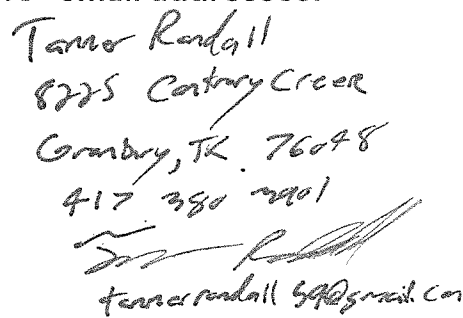 Tanner Randall
8225 Contrary Creek
Granbury, TX 76048
417 380 3901
tannerrandall59@gmail.com